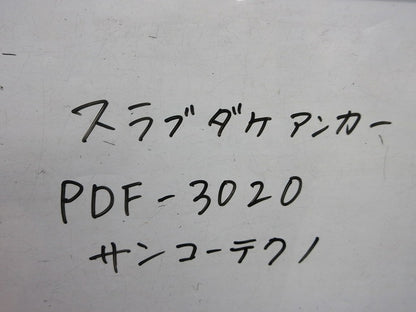 スラブダケアンカー
PDF-3020
サンコーテクノ